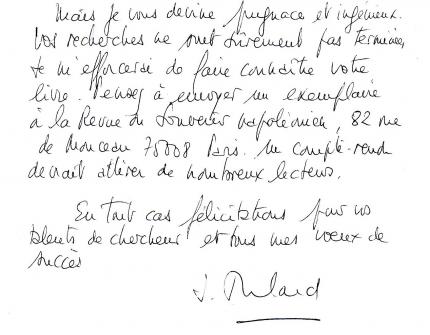 Mais je vous devine pugnace et ingénieux.
Vos recherches ne sont sûrement pas terminées,
Je m'efforcerai de faire connaître votre
livre. Pensez à envoyer un exemplaire
à la Revue du Souvenir napoléonien, 82 rue
de Monceau 75008 Paris. Un compte-rendu
devrait attirer de nombreux lecteurs.
En tout cas félicitations pour vos
talents de chercheur et tous mes voeux de
succès
J. Tulard